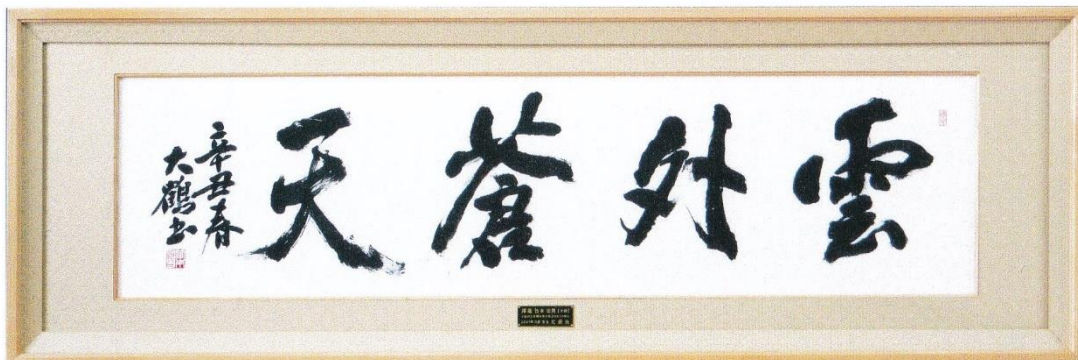 雲外蒼天
辛丑春
大鶴书